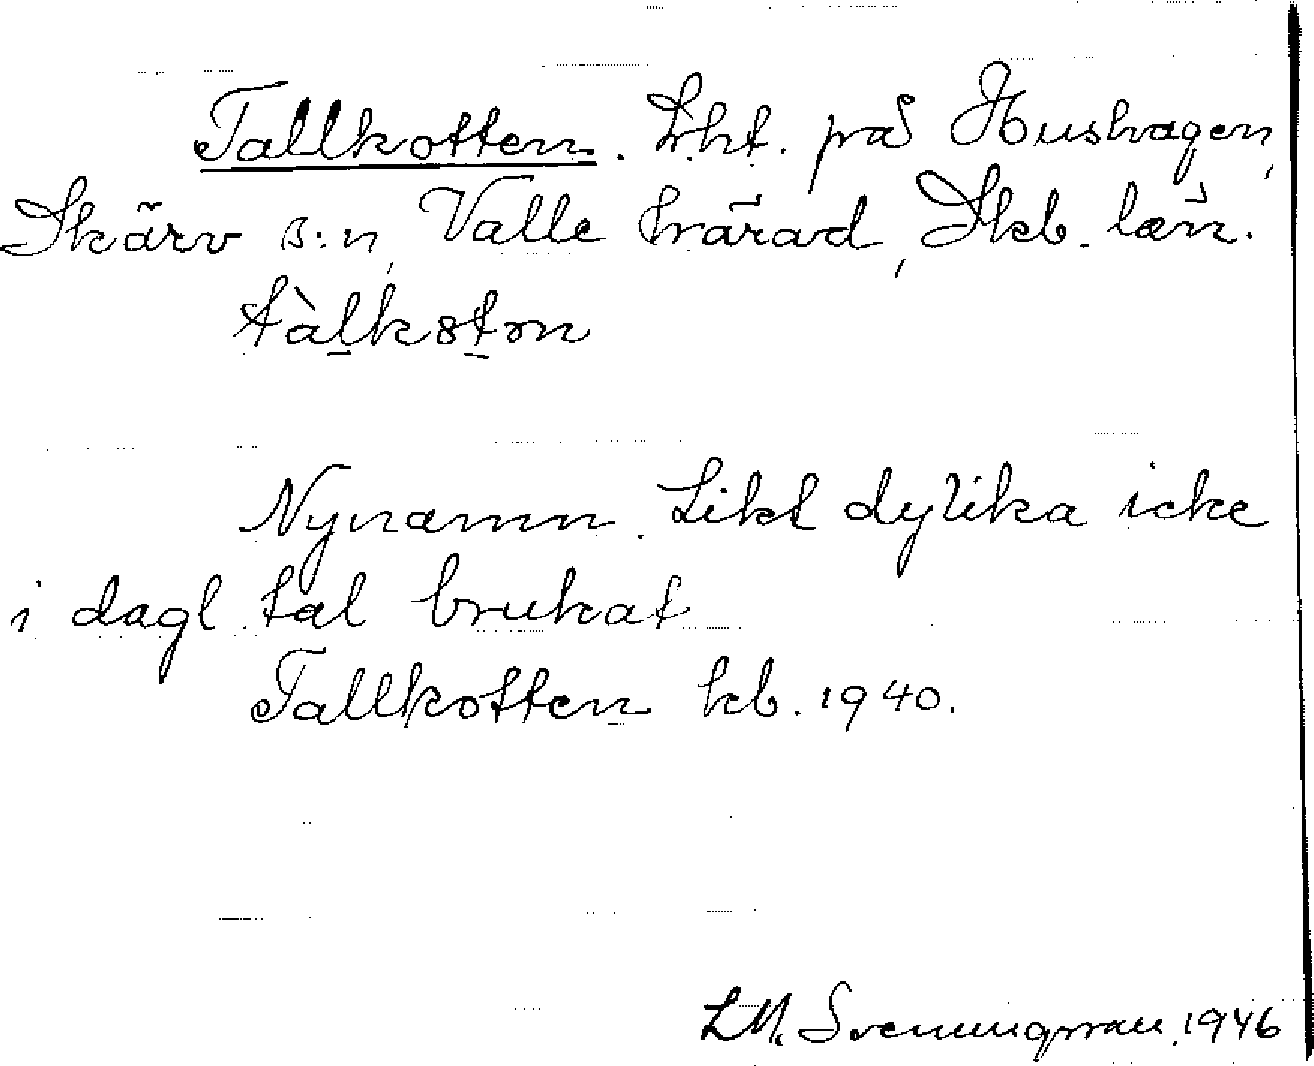 Tallkotten. Lht. på Hushagen,
Skärv s:n, Valle härad, Skb. län.
tàlkotɔn
Nynamn. Likt dylika icke
i dagl. tal brukat
Tallkotten kb. 1940.
L.M. Svenungsson, 1946